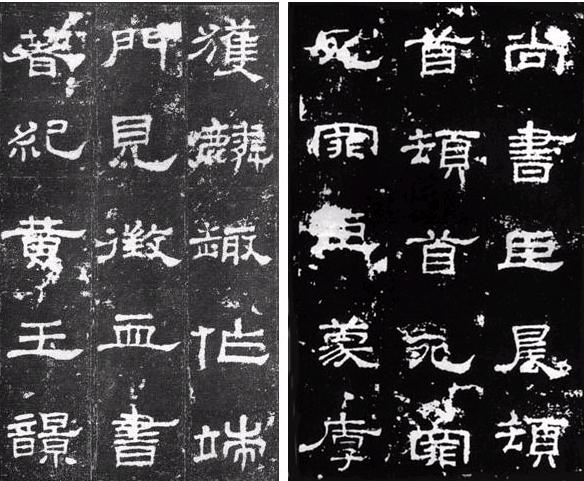 尚書臣晨頓
首頓首死罪
死罪臣蒙厚
獲麟趣作端
門見徵血書
著紀黄玉